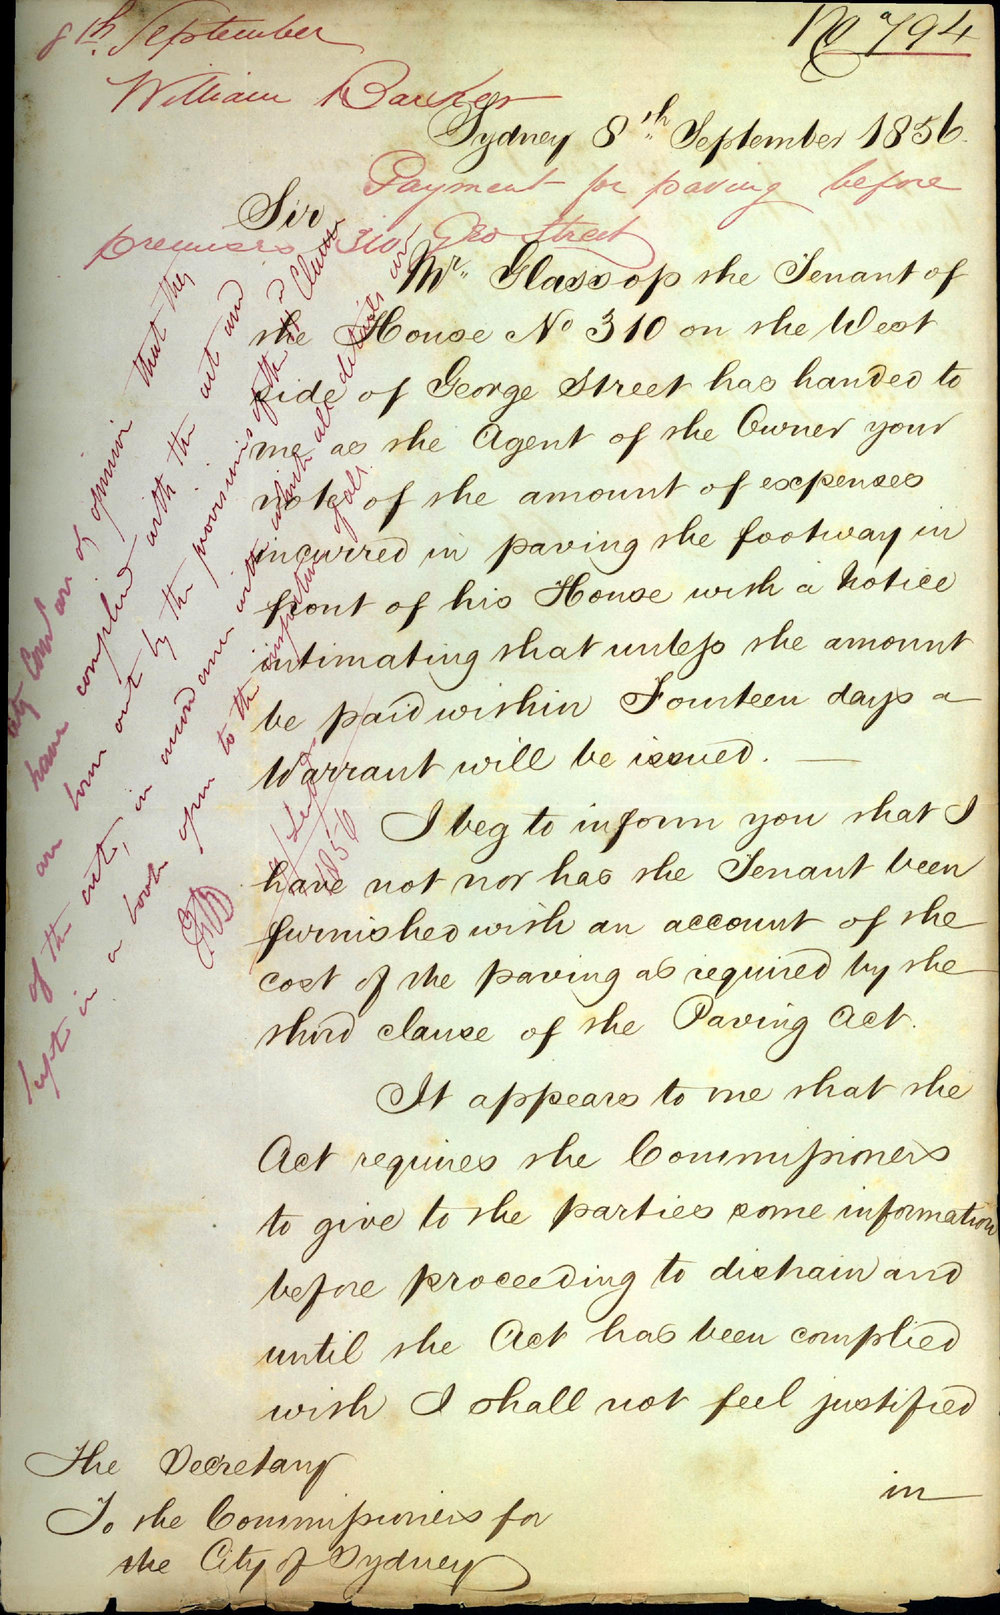 8th September
No 794
William Barker
Sydney 8th September 1856.
Payment for paving before
premises 310 Geo Street
Sir
Mr. Glassop the Tenant of
the House No 310 on the West
side of George Street has handed to
me as the Agent of the Owner your
note of the amount of expenses
incurred in paving the footway in
front of his House with a Notice
intimating that unless the amount
be paid within Fourteen days a
Warrant will be issued. —
I beg to inform you that I
have not nor has the Tenant been
furnished with an account of the
cost of the paving as required by the
third clause of the Paving Act.
It appears to me that the
Act requires the Commissioners
to give to the parties some information
before proceeding to distrain and
until the Act has been complied
with I shall not feel justified
in
The Secretary
To the Commissioners for
the City of Sydney
City Comrs are of opinion that they
have complied with the act and
are borne out by the provisions of the 2nd Clause
of the act, in accordance with which all details are
kept in a book open to the inspection of all.
1856